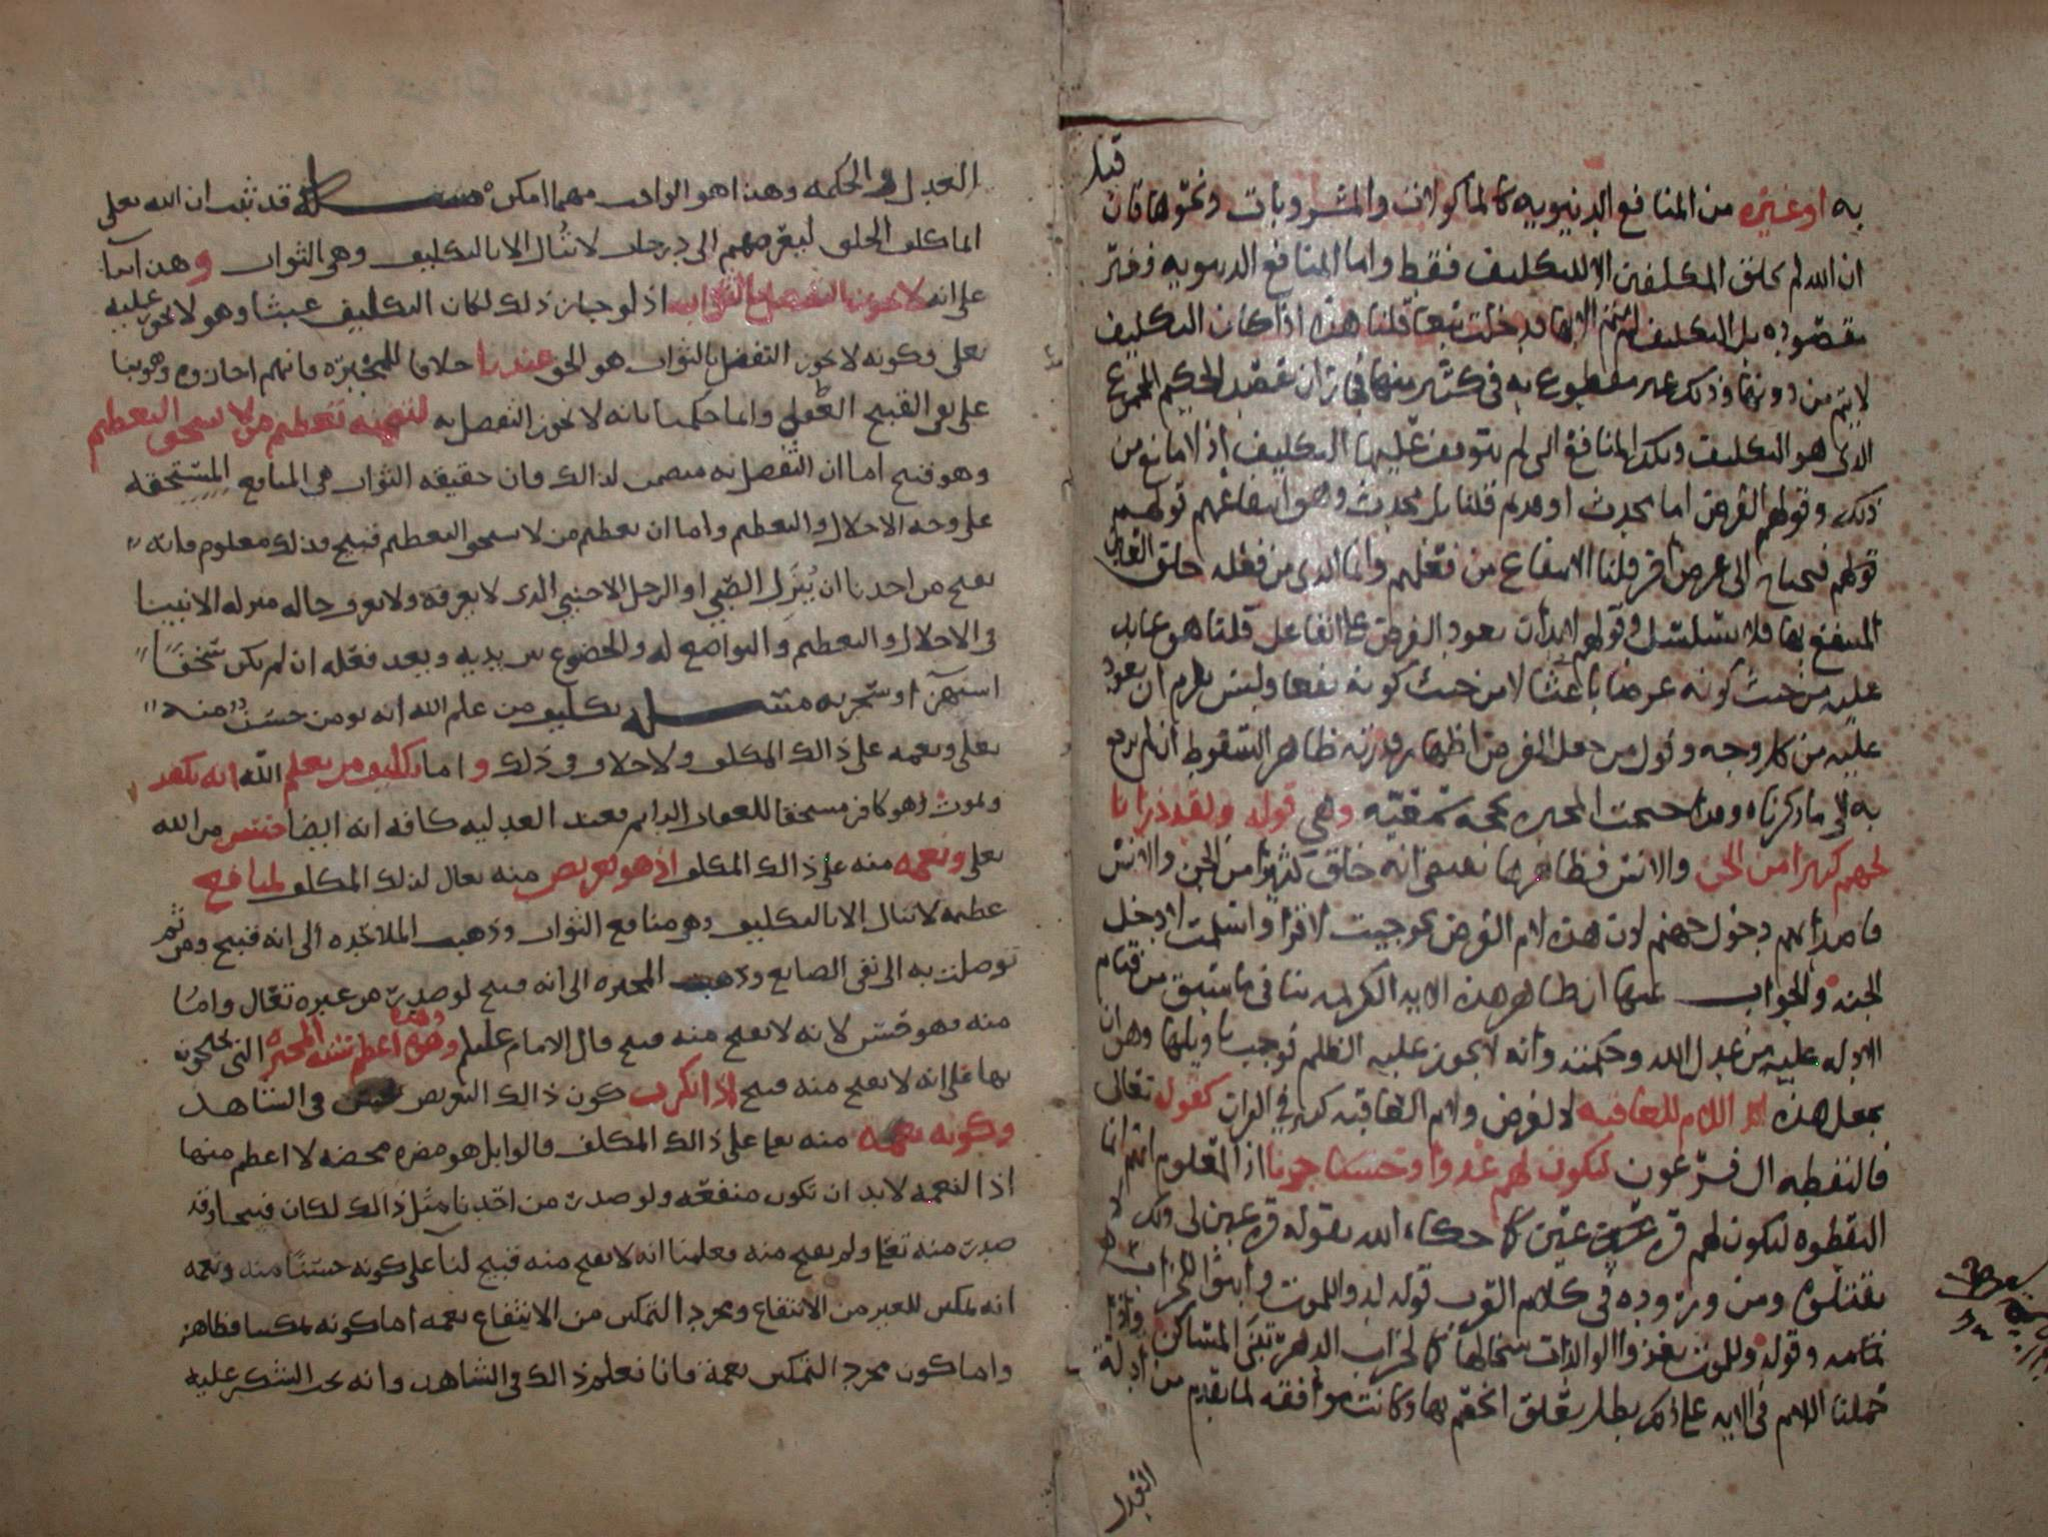 قيل
به او غيره من المنافع الدنيويه كالماكولات والمشروبات ونحوها فان
ان الله لم يخلق المكلفين الا للتكليف فقط واما المنافع الدنيويه فغير
مقصوده بل التكليف لم يتم الا بها فدخلت تبعا قلنا هذه اذا كان التكليف
لا يتم من دونها وذلك غير مقطوع به في كثير منها ان يقصد الحكيم المجموع
الذي هو التكليف وتلك المنافع التي لم يتوقف عليها التكليف اذ لا مانع من
ذلك وقولهم الغرض اما محدث او قديم قلنا بل محدث وهو انتفاعهم قولهم
قولهم فيحتاج الى غرض اخر قلنا الانتفاع من فعلهم وانما الذي من فعله خلق
المنتفع بها فلا يتسلسل وقولهم اما ان يعود الغرض على الفاعل قلنا هو عايد
عليه من حيث كونه غرضا باعثا لا من حيث كونه نفعا وليس يلزم ان يعود
عليه من كل وجه وقول من جعل الغرض اظهار قدرته ظاهر السقوط ان لم يرجع
به الى ما ذكرناه وقد احتجت المجبره بحجه سمعيه وهي قوله ولقد ذرانا
لجهنم كثيرا من الجن والانس فظاهرها يقتضي انه خلق كثيرا من الجن والانس
دخول جهنم لان هذه لام الغرض نحو جيت لاقرا واسلمت لادخل
الجنه والجواب عنها ان ظاهر هذه الايه الكريمه ينافي ما سبق من قيام
الادله عليه من عدل الله وحكمته وانه لا يجوز عليه الظلم فوجب تاويلها وهو ان
نجعل هذه اللام للعاقبه لا لغرض ولام العاقبه كثير في القران كقوله تعالى
فالتقطه ال فرعون ليكون لهم عدوا وحزنا اذ المعلوم انهم انما
التقطوه ليكون لهم قره عين كما حكاه الله بقوله قره عين لي ولك لا
تقتلوه ومن وروده في كلام العرب قوله لدوا للموت وابنوا للخراب
تمامه وقوله وللموت تغذوا الوالدات سخالها كما لخراب الدهر تبنى المساكن واذا
حملنا اللام في الايه على ذلك بطل تعلق الخصم بها وكانت موافقه لما تقدم من ادلة
العدل
العدل والحكمه وهذا هو الواجب مهما امكن مسئلة قد ثبت ان الله تعلى
انما كلف الخلق ليعرضهم الى درجات لا تنال الا بالتكليف وهي الثواب وهذا
على انه لا يجوز التفضل بالثواب اذ لو جاز ذلك لكان التكليف عبثا وهو لا يجوز عليه
تعلى وكونه لا يجوز التفضل بالثواب هو الحق عندنا خلافا للمجبره فانهم اجازوه وهو بنا
على نفي القبح العقلي وانما حكمنا بانه لا يجوز التفضل به لتضمنه تعظيم من لا يستحق التعظيم
وهو قبيح اما ان التفضل به متضمن لذالك فان حقيقه الثواب هي المنافع المستحقه
على وجه الاجلال والتعظيم واما ان تعظيم من لا يستحق التعظيم قبيح فذلك معلوم فانه
يقبح من احدنا ان ينزل الصبي او الرجل الاجنبي الذي لا يعرفه ولا يعرف حاله منزله الانبيا
في الاجلال والتعظيم والتواضع له والخضوع بين يديه ويعد فعله ان لم يكن سخفا
استهزا او سخريه مسئلة تكليف من علم الله انه يومن حسن منه
تعلى ونعمه على ذالك المكلف ولا خلاف في ذلك واما تكليف من يعلم الله انه يكفر
ويموت وهو كافر مستحقا للعقاب الدايم فعند العدليه كافه انه ايضا حسن من الله
تعلى ونعمه منه على ذالك المكلف اذ هو تعريض منه تعالى لذلك المكلف لمنافع
عظيمه لا تنال الا بالتكليف وهو منافع الثواب وذهبت الملاحده الى انه قبيح ومن ثم
توصلت به الى نفي الصانع وذهبت المجبره الى انه قبيح لو صدر من غيره تعالى واما
منه فهو حسن لانه لا يقبح منه قبيح قال الامام عليلم وهذه اعظم شبه المجبره التي يحتجون
بها على انه لا يقبح منه قبيح اذا انكرت كون ذالك التعريض حسن في الشاهد
وكونه نعمه منه تعا على ذالك المكلف قالوا بل هو مضره محضه لا اعظم منها
اذا النعمه لا بد ان تكون منفعه ولو صدر من احدنا مثل ذالك لكان قبيحا وقد
صدر منه تعلى ولم يقبح منه فعلمنا انه لا يقبح منه قبيح لنا على كونه حسنا منه ونعمه
انه تمكين للغير من الانتفاع ومجرد التمكين من الانتفاع نعمه اما كونه تمكينا فظاهر
واما كون مجرد التمكين نعمة فانا نعلم ذالك في الشاهد وانه يجب الشكر عليه